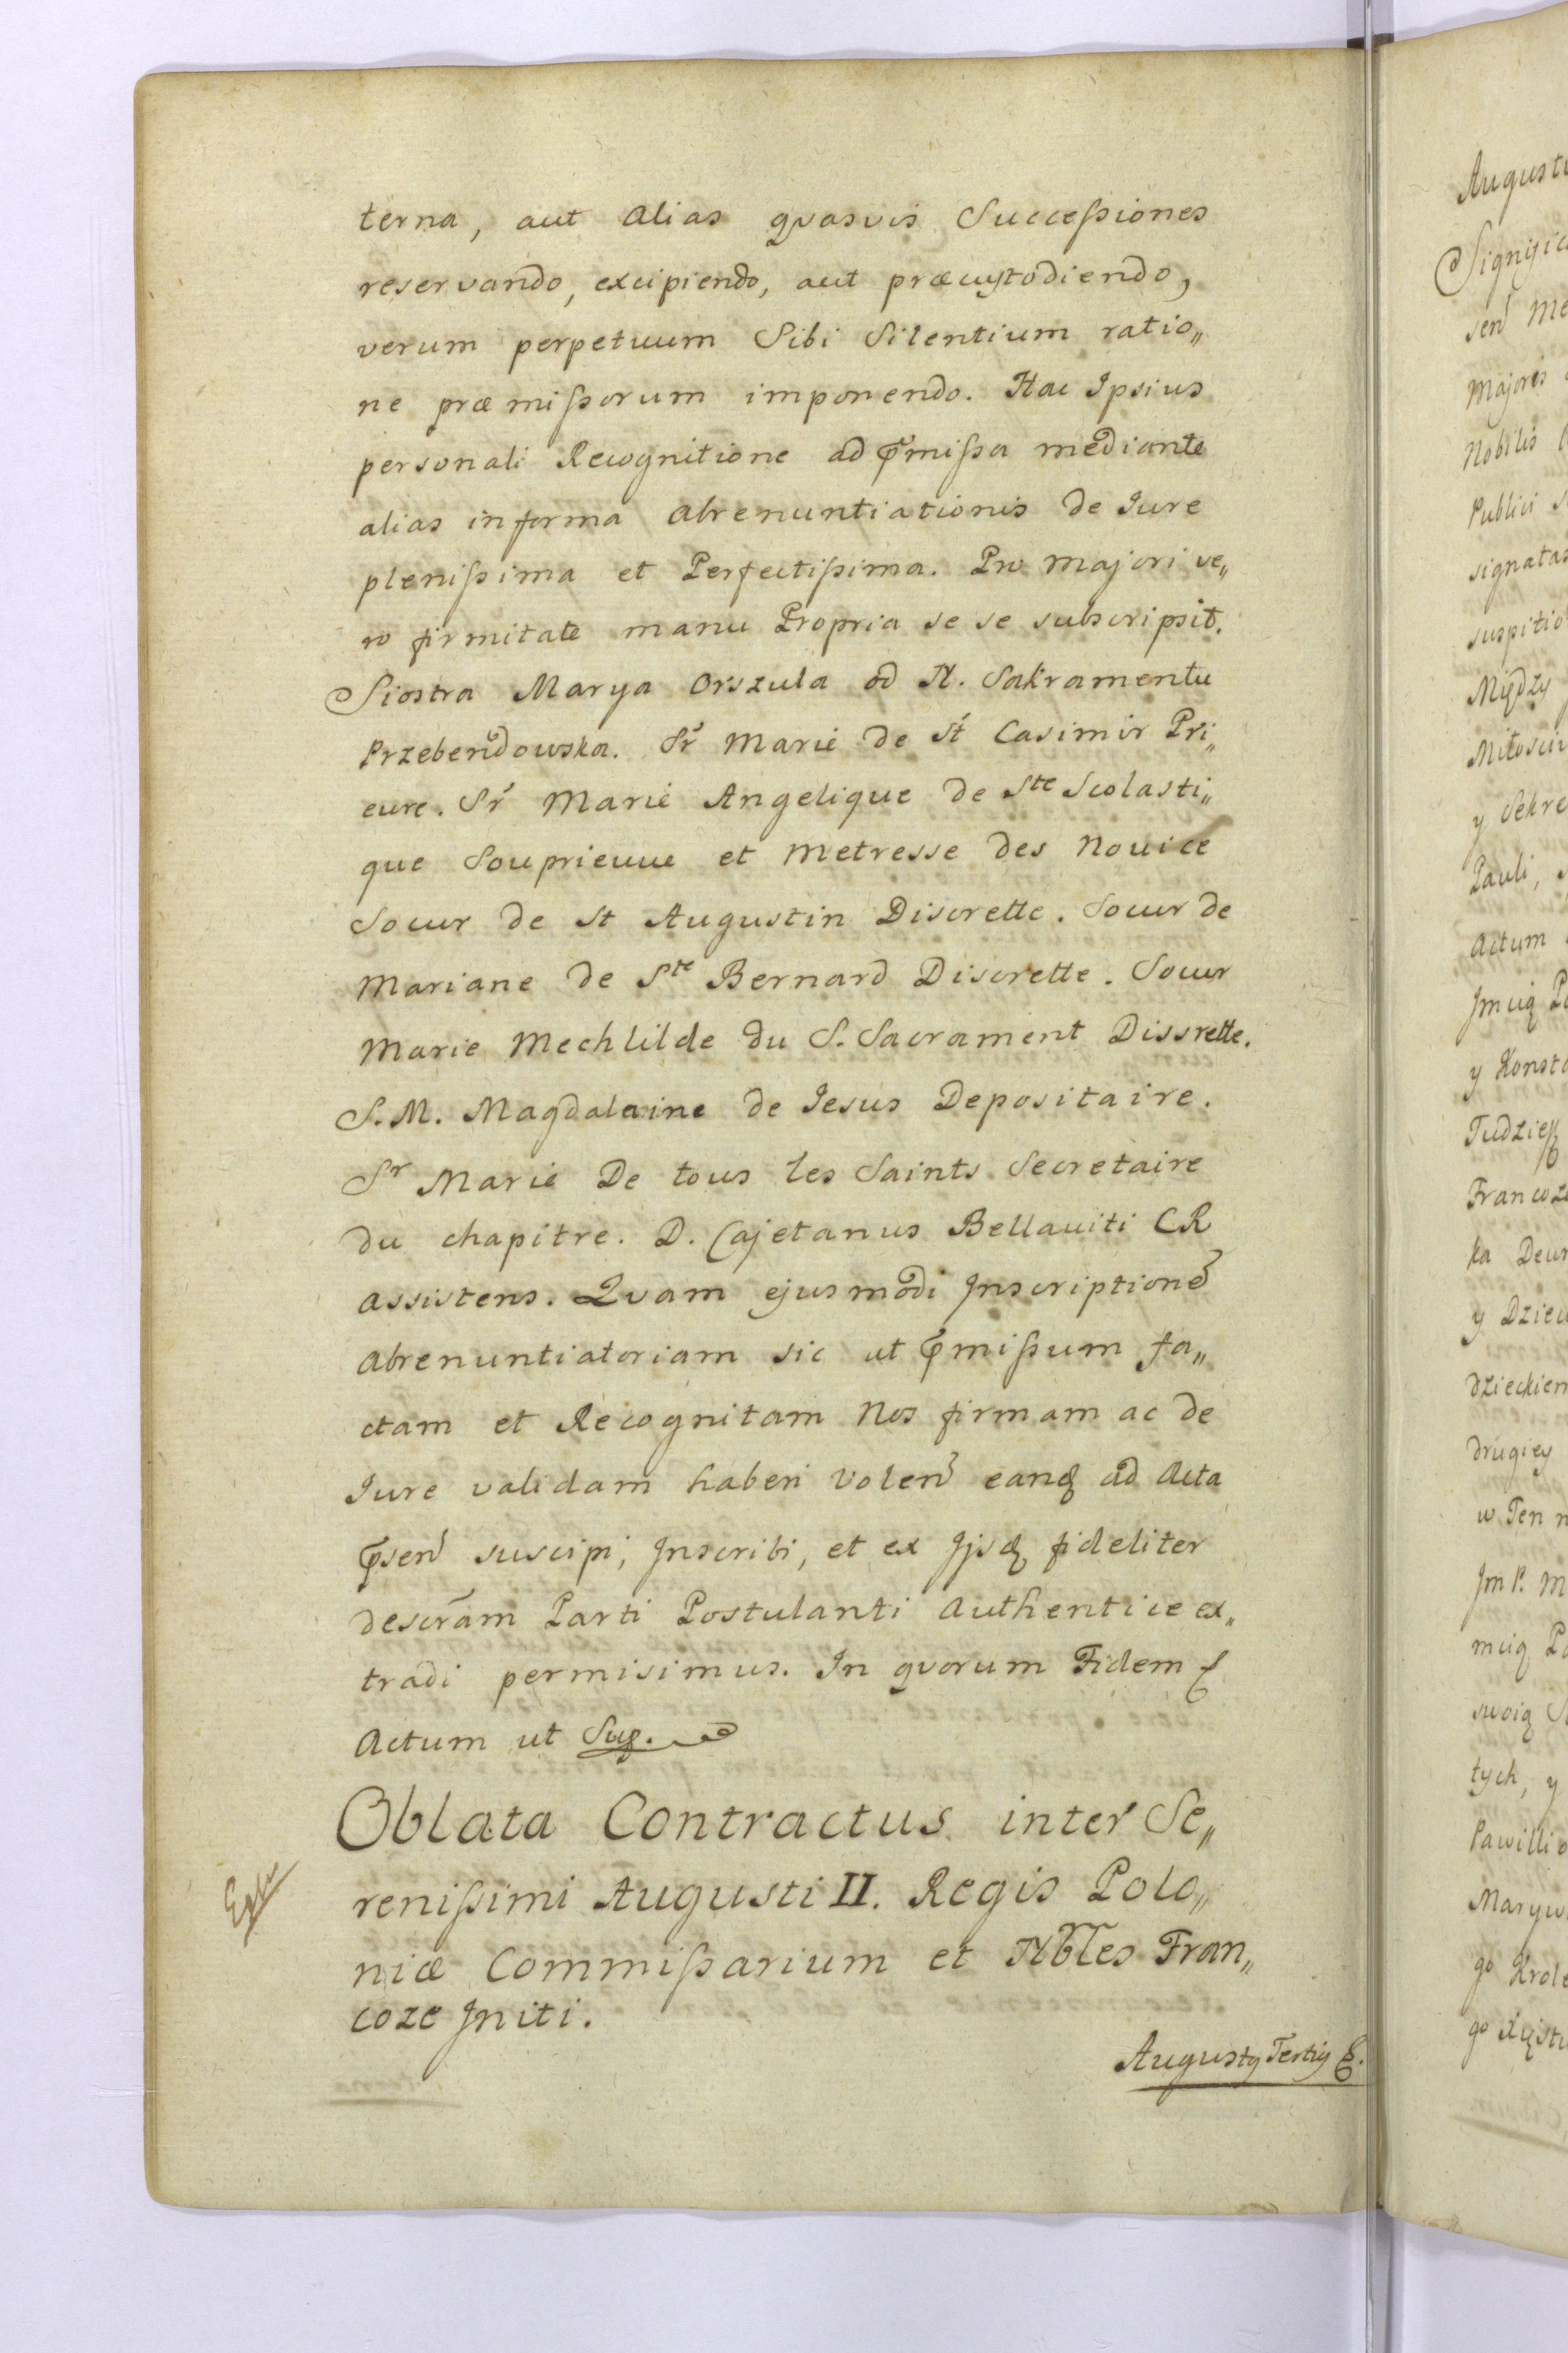 terna, aut alias quasvis Successiones
reservando, excipiendo, aut præcustodiendo,
verum perpetuum Sibi Silentium ratio„
ne præmissorum imponendo. Hac Ipsius
personali Recognitione ad Pmissa mediante
alias in forma abrenuntiationis de Iure
plenissima et Perfectissima. Pro majori ve„
ro firmitate manu Propria se se subscripsit.
Siostra Marya Orszula od N. Sakramentu
Przebendowska. Sr Marie de St Casimir Pri„
eure. Sr Marie Angelique de Ste Scolasti„
que Souprieuue et Metresse des Novice
Soeur de St Augustin Discrette. Soeur de
Mariane de Ste Bernard Discrette. Soeur
Marie Mechlilde du S. Sacrament Dissrette.
S. M. Magdalaine de Iesus Depositaire.
Sr Marie De tous les Saints Secretaire
du chapitre. D. Cajetanus Bellaviti CR
assistens. Quam ejusmodi Inscriptione
abrenuntiatoriam sic ut Pmissum fa„
ctam et Recognitam Nos firmam ac de
Iure validam haberi volen eanq ad Acta
Psen suscipi, Inscribi, et ex Ijsq fideliter
descram Parti Postulanti authentice ex„
tradi permisimus. In quorum Fidem
Actum ut Sup.
Oblata Contractus inter Se„
renissimi Augusti II. Regis Polo„
niæ Commissarium et Nbles Fran„
coze Initi.
Augusty Tertiy
Augusti
Signific
sen Me
Majoris
Nobilis
Publici
signatas
suspitio
Między
Miłosciw
y Sekre
Pauli,
Actum
Jmcią
y Konst
Tudzież
Francoz
ka
y Dziew
dzieckiem
drugiey
w Ten
Jm P. M
mcią
swoią
tych, y
Pawilli
Maryw
go Krole
go Xięstw